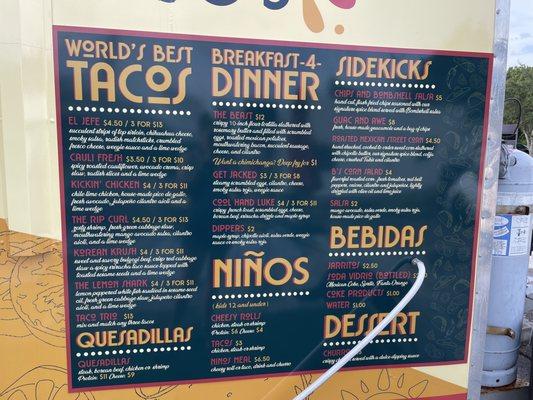 WORLD'S BEST
TACOS
EL JEFE $4.50 / 3 FOR $13
succulent strips of top sirloin, chihuahua cheese,
smoky salsa, radish matchsticks, crumbled
fresco cheese, veggie sauce and a lime wedge
CAULI FRESH $3.50 / 3 FOR $10
spicy roasted cauliflower, avocado crema, crisp
slaw, radish slices and a lime wedge
KICKIN' CHICKEN $4 / 3 FOR $11
chile lime chicken, house-made pico de gallo,
fresh avocado, jalapeño cilantro aioli
and a lime wedge
THE RIP CURL $4.50 / 3 FOR $13
zesty shrimp, fresh green cabbage slaw,
mouthwatering mango avocado salsa, cilantro
aioli, and a lime wedge
KOREAN KRUSH $4 / 3 FOR $11
sweet and savory bulgogi beef, crisp red cabbage
slaw a spicy sriracha taco sauce topped with
toasted sesame seeds and a lime wedge
THE LEMON SHARK $4 / 3 FOR $11
lemon peppered white fish sautéed in sesame seed
oil, fresh green cabbage slaw, jalapeño cilantro
aioli, and a lime wedge
TACO TRIO $13
mix and match any three tacos
QUESADILLAS
QUESADILLAS
steak, korean beef, chicken or shrimp
Protein $11 Cheese $9
BREAKFAST-4-
DINNER
THE BEAST $12
crispy 10-inch flour tortilla slathered with
rosemary butter and filled with scrambled
egg, roasted mexican potatoes,
mouthwatering bacon, succulent steak,
cheese, and cilantro
Want a chimichanga? Deep fry for $1
GET JACKED $3 / 3 FOR $8
steamy scrambled eggs, cilantro, cheese,
smoky salsa roja, veggie sauce
COOL HAND LUKE $4 / 3 FOR $11
crispy french toast, scrambled eggs, cheese,
korean beef, sriracha drizzle and maple syrup
DIPPERS $2
maple syrup, chipotle aioli, salsa verde, veggie
sauce or smoky salsa roja
NIÑOS
(kids 12 and under)
CHEESY ROLLS
chicken, steak or shrimp
Protein $6 Cheese $4
TACOS $3
chicken, steak or shrimp
NIÑOS MEAL $6.50
cheesy roll or taco, drink and churro
SIDEKICKS
CHIPS AND BOMBSHELL SALSA $5
hand cut, fresh fried chips seasoned with our
signature spice blend served with Bombshell salsa
GUAC AND AWE $8
fresh, house-made guacamole and a bag of chips
ROASTED MEXICAN STREET CORN $4.50
B'S CORN SALAD $4
SALSA $2
mango avocado, salsa verde, smoky salsa roja,
house made pico de gallo
BEBIDAS
JARRITOS $2.50
SODA VIDRIO (BOTTLED)
Mexican Coke, Sprite, Fanta Orange
COKE PRODUCTS $1.00
WATER $1.00
DESSERT
with a dulce dipping sauce